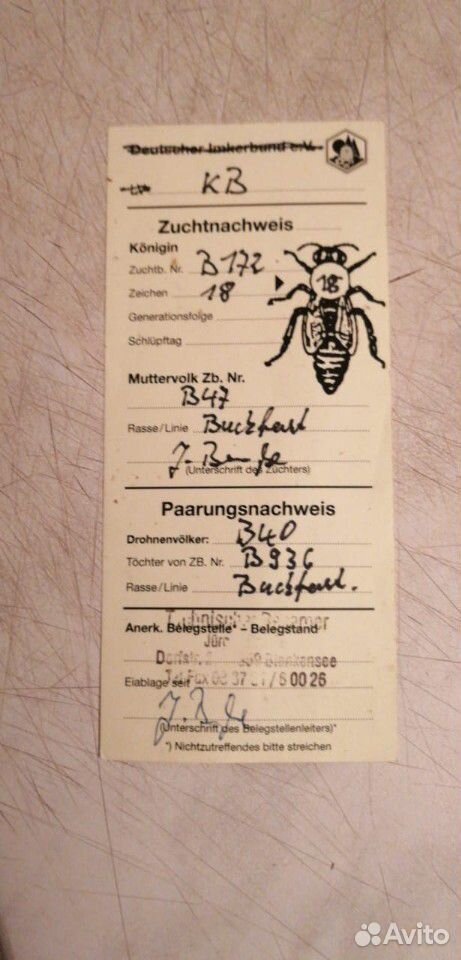 Deutscher Imkerbund e.V.
KB
Zuchtnachweis
Königin
Zuchtb. Nr. B172
Zeichen 18
18
Generationsfolge
Schlüpftag
Muttervolk Zb. Nr.
B47
Rasse/Linie Buckfast
(Unterschrift des Züchters)
Paarungsnachweis
Drohnenvölker: B40
Töchter von ZB. Nr. B936
Rasse/Linie Buckfast.
Anerk. Belegstelle* – Belegstand
Eiablage seit
(Unterschrift des Belegstellenleiters)*
*) Nichtzutreffendes bitte streichen
Avito